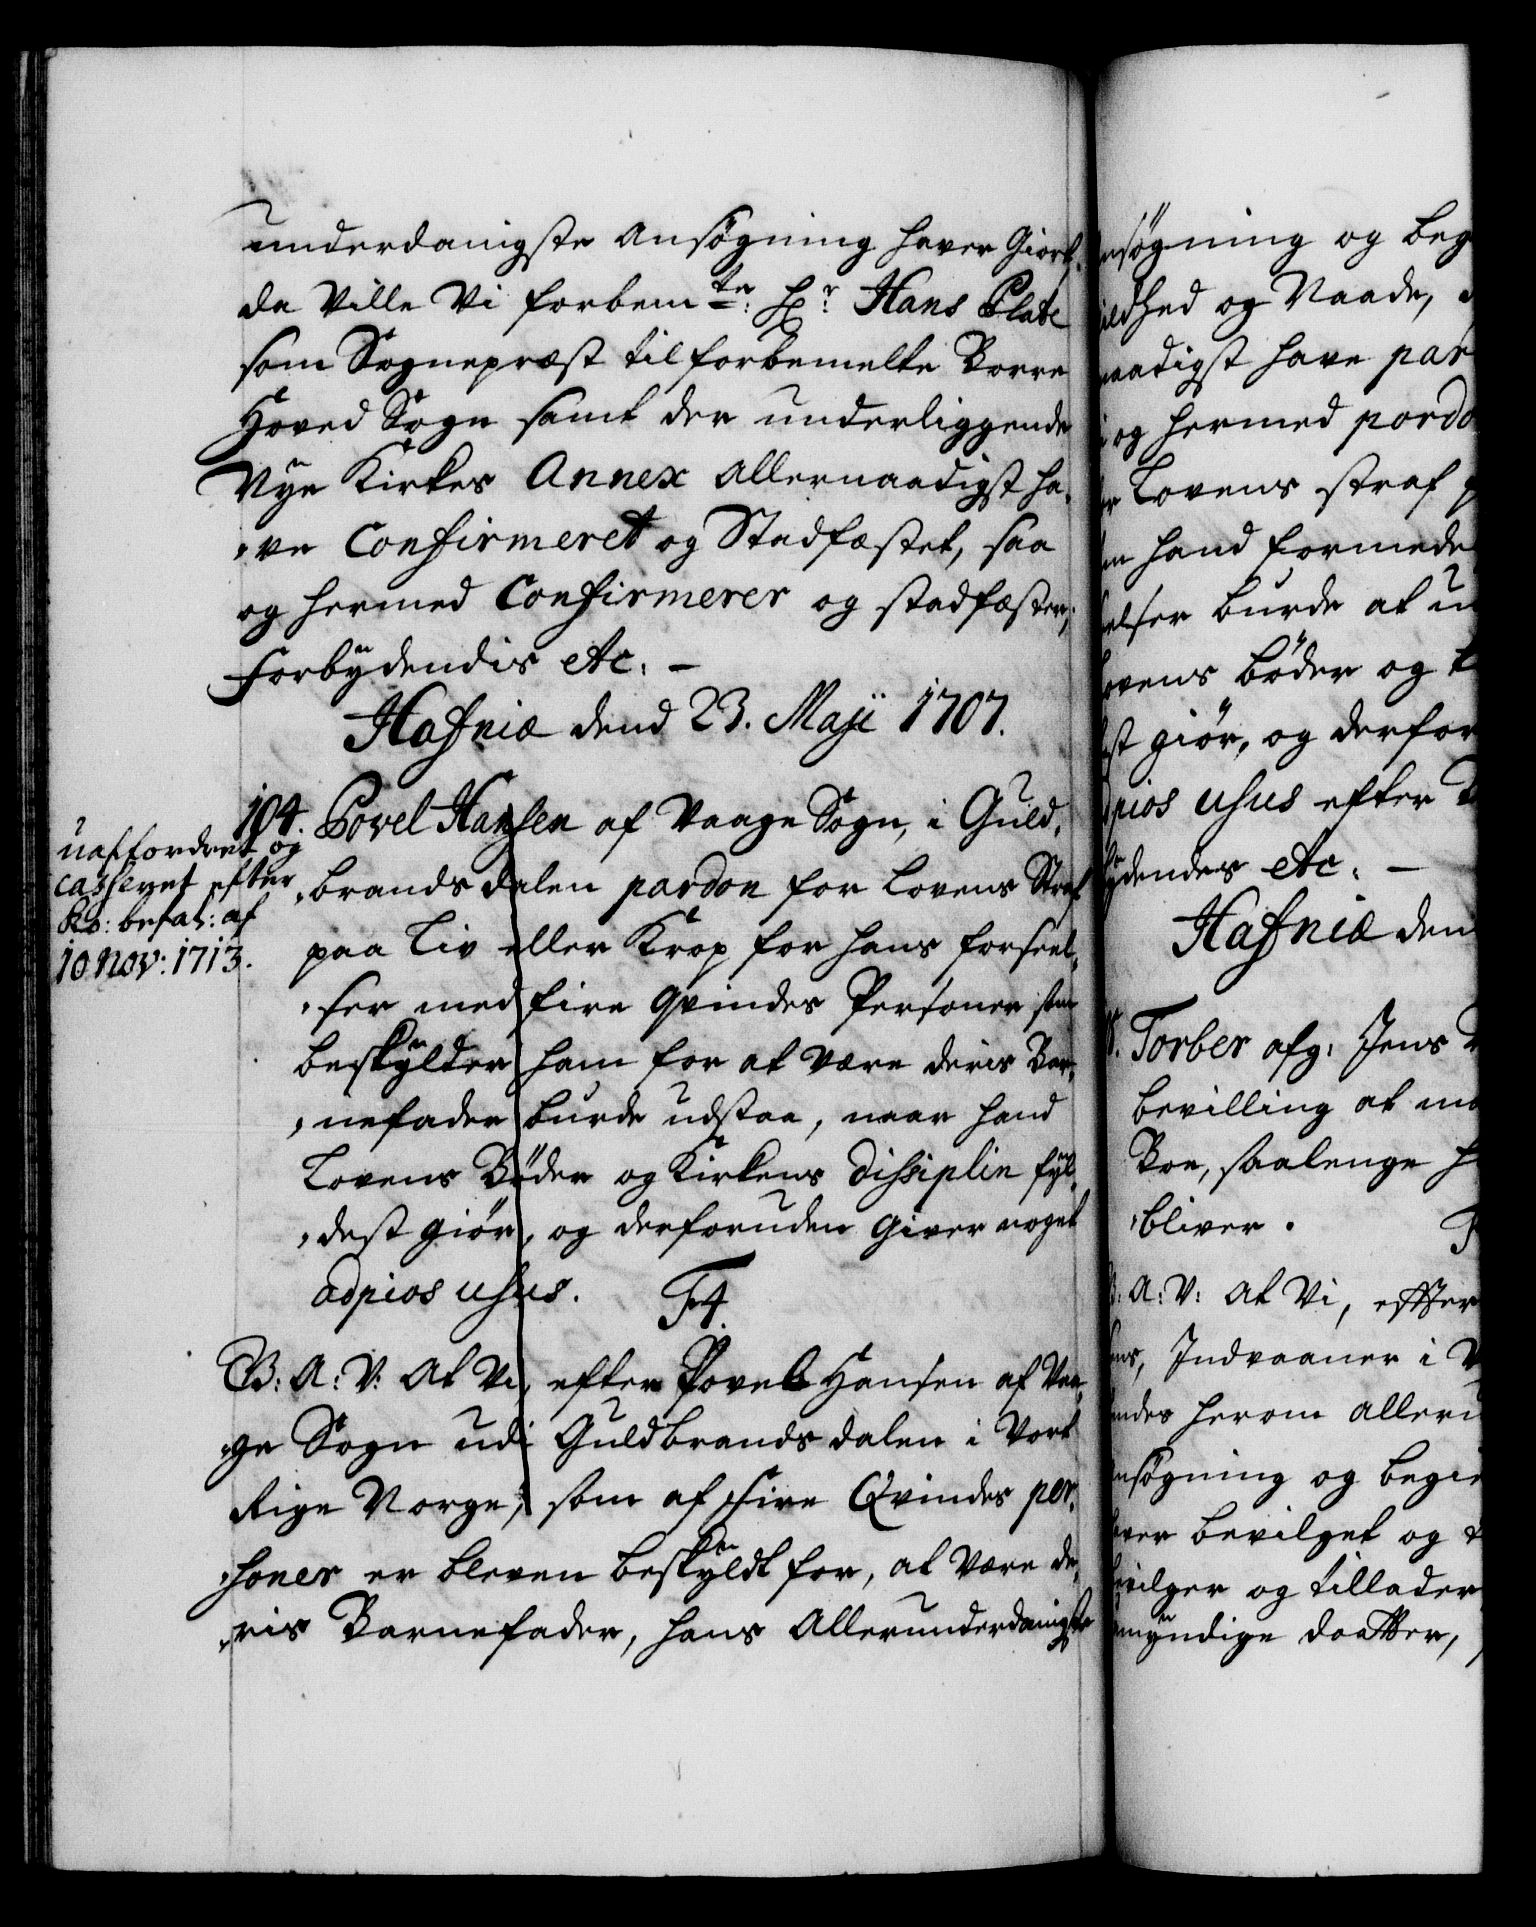 underdanigste Ansøgning haver Giort,
da Ville Vi forbem.te: Hr: Hans Plate
som Sognepræst til forbemelte Borre
Hoved Sogn samt der underliggende
Nÿe Kirkes Annex Allernaadigst ha,
,ve Confirmeret og Stadfæstet, saa
og hermed Confirmerer og stadfæster,
Forbÿdendis etc: –
Hafniæ dend 23. Maji 1707.
104. Povel Hansen af Vaage Sogn, i Guld,
,brandsdalen pardon for Lovens Straf
paa Liv eller Krop for hans forseel,
,ser med fire Qvindes Personer som
beskÿlder ham for at være deris Bar,
,nefader burde udstaa, naar hand
Lovens Bøder og Kirkens Dissiplin fÿl,
,dest giør, og derforuden Giver noget
ad pios usus. F4.
B: A: V: At Vi, efter Povel Hansen af Vaa,
,ge Sogn udi Guldbrandsdalen i Vort
Rige Norge, som af Fire Qvindes per,
,soner er bleven beskÿldt for, at være de,
,ris Barnefader, hans Allerunderdanigste
uaffordret og
casseret efter
Ko: befal: af
10 Nov: 1713.
nsøgning og beg
ildhed og Naade,
naadigst have par
og hermed pardo
Lovens straf
hand formede
elser burde at u
ovens bøder og
st giør, og derfor
pios usus efter
ÿdendes etc: –
Hafniæ den
Torber afg: Jens
bevilling at ma
Boe, saalenge h
,bliver.
B: A: V: At Vi, efter
ens, Indvaaner i
endes herom alleru
nsøgning og begie
ver bevilget og
ilger og tillader
mÿndige daatter,